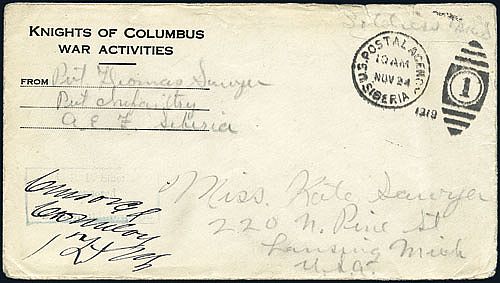 Soldiers Mail
KNIGHTS OF COLUMBUS
WAR ACTIVITIES
FROM Pvt Thomas Sawyer
Pvt Infantry
A E F Siberia
U.S. POSTAL AGENCY
10 AM
NOV 24
1919
SIBERIA
1
Censored
1 Lt
Miss. Kate Sawyer
220 N. Pine St
Lansing Mich
U.S.A.